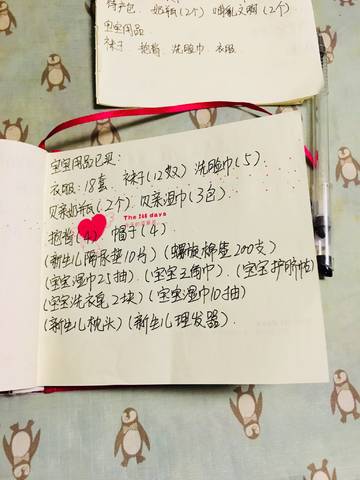 待产包 奶瓶(2个) 哺乳文胸(2个)
宝宝用品
袜子 抱被 洗脸巾 衣服
宝宝用品已买:
衣服:18套. 袜子(12双) 洗脸巾(5).
贝亲奶瓶(2个) 贝亲湿巾(3包)
The 168 days
抱被(4) 帽子(4)
(新生儿隔尿垫10片) (螺旋棉签200支)
(宝宝湿巾25抽) (宝宝三角巾) (宝宝护脐帖)
(宝宝洗衣皂2块) (宝宝湿巾10抽)
(新生儿枕头) (新生儿理发器).